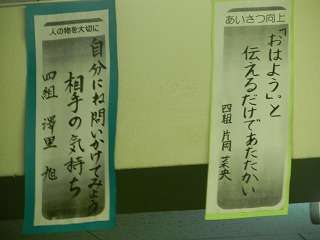 あいさつ向上
「おはよう。」と
伝えるだけであたたかい
四組 片岡 菜央
人の物を大切に
自分にね問いかけてみよう
相手の気持ち
四組 澤里 旭